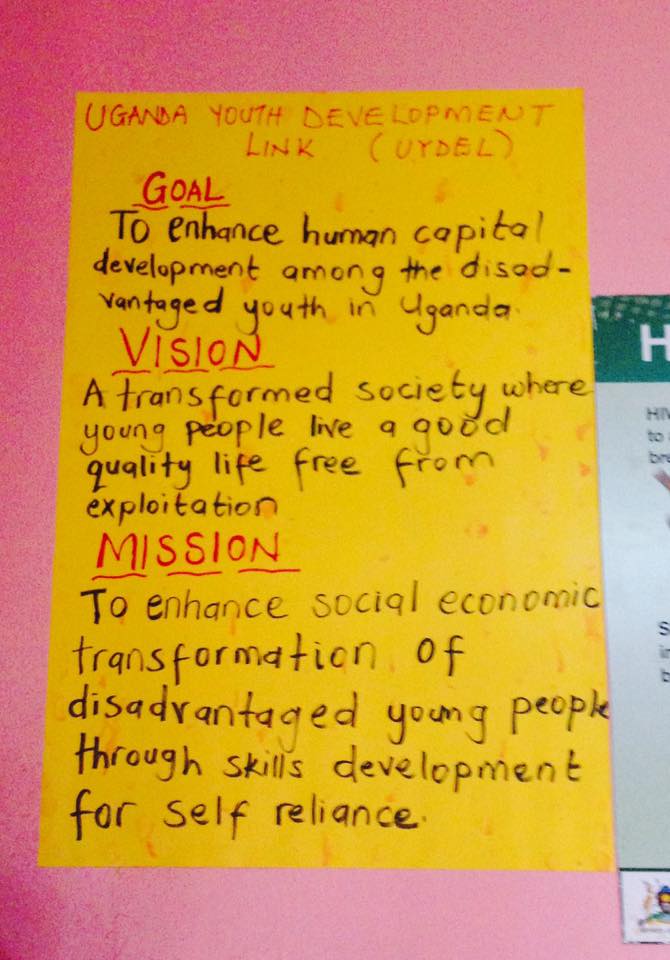 UGANDA YOUTH DEVELOPMENT
LINK (UYDEL)
GOAL
To enhance human capital
development among the disad-
vantaged youth in Uganda.
VISION
A transformed society where
young people live a good
quality life free from
exploitation
MISSION
To enhance social economic
transformation of
disadvantaged young people
through skills development
for self reliance.
H
HIV
to
bre
S
in
b